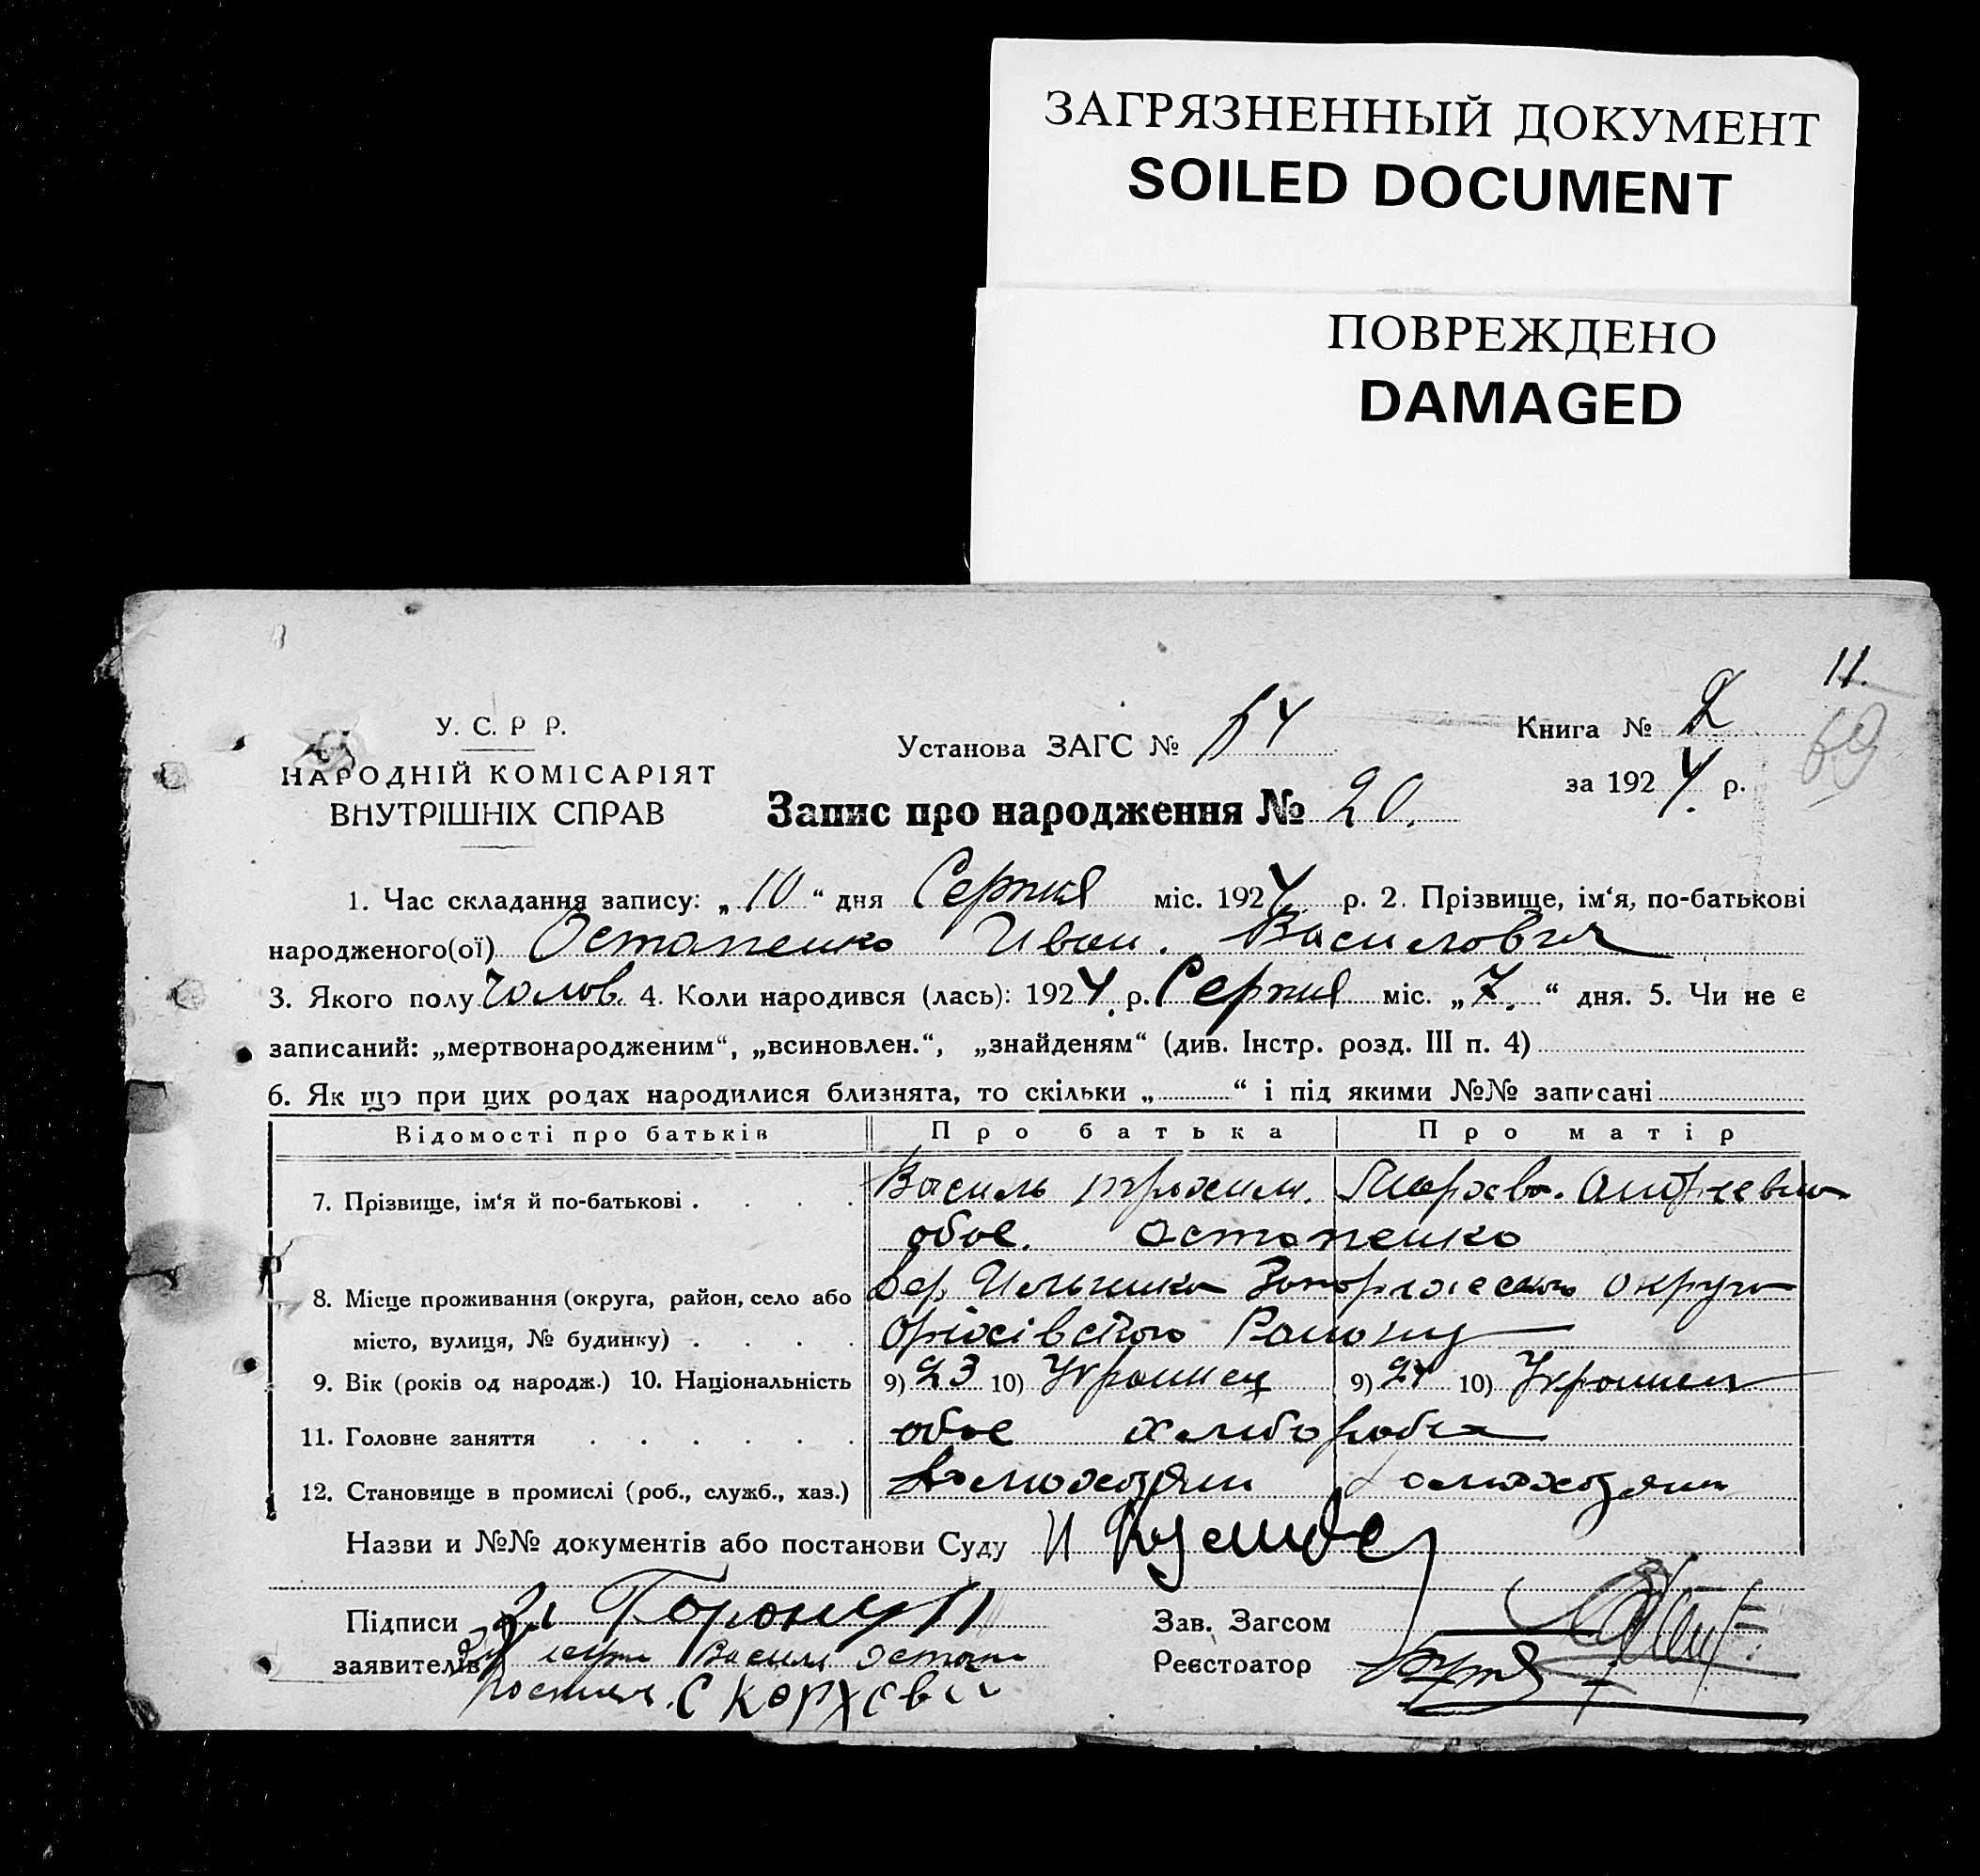 ЗАГРЯЗНЕННЫЙ ДОКУМЕНТ
SOILED DOCUMENT
ПОВРЕЖДЕНО
DAMAGED
11.
69
У. С. Р Р.
НАРОДНІЙ КОМІСАРІЯТ
ВНУТРІШНІХ СПРАВ
Установа ЗАГС № 54
Книга № 2
за 1924 р.
Запис про народження № 20.
1. Час складання запису: „10“ дня Серпня міс. 1924 р. 2. Прізвище, ім‘я, по-батькові
народженого(ої) Остапенко Иван. Василович
3. Якого полу чолов. 4. Коли народився (лась): 1924 р. Серпня міс. „7.“ дня. 5. Чи не є
записаний: „мертвонародженим“, „всиновлен.“, „знайденям“ (див. Інстр. розд. III п. 4)
6. Як що при цих родах народилися близнята, то скільки „ “ і під якими №№ записані
Відомості про батьків Про батька Про матір
7. Прізвище, ім‘я й по-батькові . . . . Василь
обое. Остапенко
8. Місце проживання (округа, район, село або округа
місто, вулиця, № будинку) . . . . Оріхівского Району
9. Вік (років од народж.) 10. Національність 9) 23 10) Украинец 9) 24 10)
11. Головне заняття . . . . . . обое хлибороби
12. Становище в промислі (роб., служб., хаз.)
Назви и №№ документів або постанови Суду
Підписи
заявителів Василя
Зав. Загсом
Реєстратор